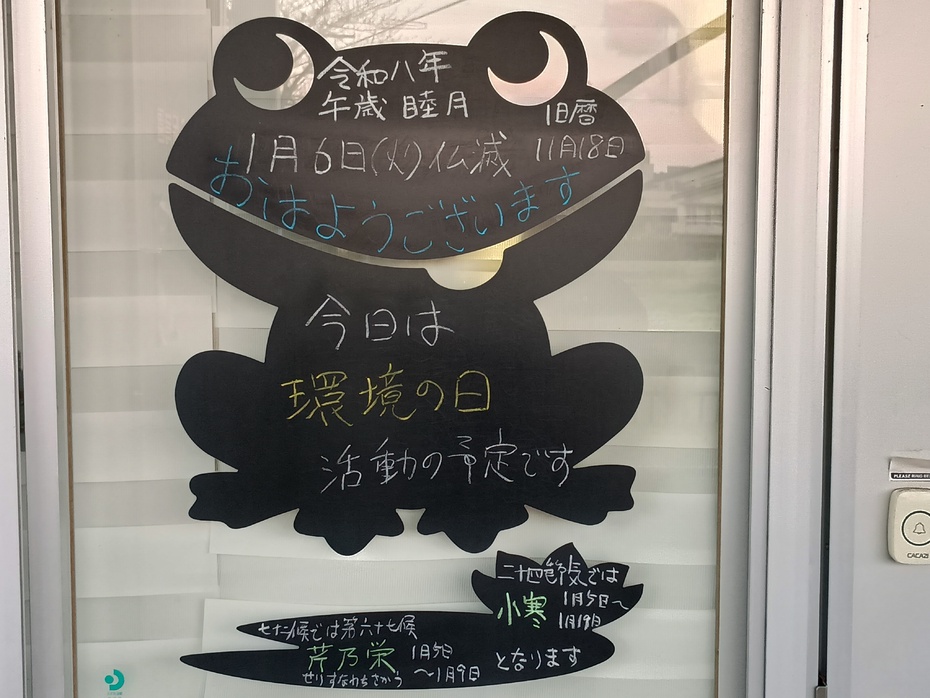 令和八年
午歳 睦月
旧暦
1月6日(火)仏滅 11月18日
おはようございます
今日は
環境の日
活動の予定です
二十四節気では
小寒 1月5日～
1月19日
七十二候では第六十七候
芹乃栄 1月5日
せりすなわちさかう ～1月9日
となります
PLEASE RING BE
CACAZI